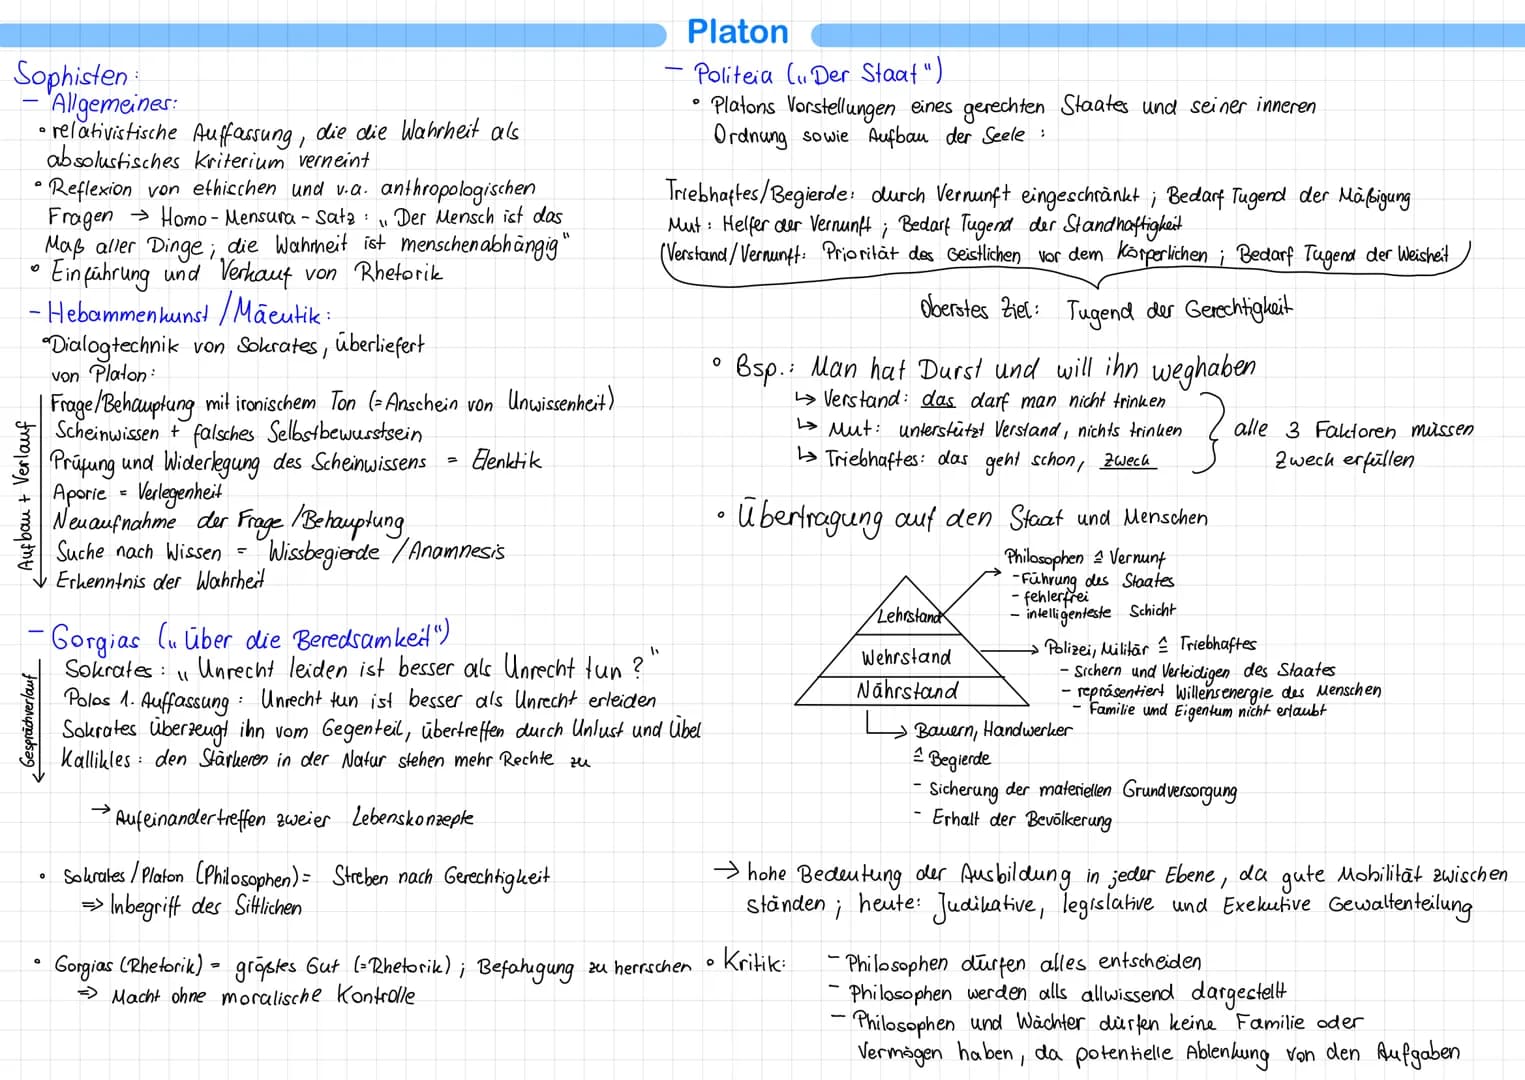 Platon
Sophisten:
- Allgemeines:
• relativistische Auffassung, die die Wahrheit als
absolustisches Kriterium verneint
• Reflexion von ethischen und v.a. anthropologischen
Fragen → Homo-Mensura-Satz: „Der Mensch ist das
Maß aller Dinge; die Wahrheit ist menschenabhängig"
• Einführung und Verkauf von Rhetorik
- Hebammenkunst / Mäeutik:
• Dialogtechnik von Sokrates, überliefert
von Platon:
Aufbau + Verlauf
Frage/Behauptung mit ironischem Ton (= Anschein von Unwissenheit)
Scheinwissen + falsches Selbstbewusstsein
Prüfung und Widerlegung des Scheinwissens = Elenktik
Aporie = Verlegenheit
Neuaufnahme der Frage / Behauptung
Suche nach Wissen = Wissbegierde / Anamnesis
Erkenntnis der Wahrheit
- Gorgias („Über die Beredsamkeit")
Gesprächverlauf
Sokrates: „Unrecht leiden ist besser als Unrecht tun?"
Polos 1. Auffassung: Unrecht tun ist besser als Unrecht erleiden
Sokrates überzeugt ihn vom Gegenteil, übertreffen durch Unlust und Übel
Kallikles: den Stärkeren in der Natur stehen mehr Rechte zu
→ Aufeinandertreffen zweier Lebenskonzepte
• Sokrates / Platon (Philosophen) = Streben nach Gerechtigkeit
⇒ Inbegriff des Sittlichen
• Gorgias (Rhetorik) = größtes Gut (= Rhetorik); Befähigung zu herrschen
⇒ Macht ohne moralische Kontrolle
- Politeia („Der Staat")
• Platons Vorstellungen eines gerechten Staates und seiner inneren
Ordnung sowie Aufbau der Seele:
Triebhaftes/Begierde: durch Vernunft eingeschränkt; Bedarf Tugend der Mäßigung
Mut: Helfer der Vernunft; Bedarf Tugend der Standhaftigkeit
(Verstand/Vernunft: Priorität des Geistlichen vor dem Körperlichen; Bedarf Tugend der Weisheit
Oberstes Ziel: Tugend der Gerechtigkeit
• Bsp.: Man hat Durst und will ihn weghaben
↳ Verstand: das darf man nicht trinken
↳ Mut: unterstützt Verstand, nichts trinken
↳ Triebhaftes: das geht schon, Zweck
alle 3 Faktoren müssen
Zweck erfüllen
• Übertragung auf den Staat und Menschen
Lehrstand
Wehrstand
Nährstand
Philosophen ≙ Vernunf
- Führung des Staates
- fehlerfrei
- intelligenteste Schicht
Polizei, Militär ≙ Triebhaftes
- Sichern und Verteidigen des Staates
- repräsentiert Willensenergie des Menschen
- Familie und Eigentum nicht erlaubt
Bauern, Handwerker
≙ Begierde
- Sicherung der materiellen Grundversorgung
- Erhalt der Bevölkerung
→ hohe Bedeutung der Ausbildung in jeder Ebene, da gute Mobilität zwischen
ständen; heute: Judikative, legislative und Exekutive Gewaltenteilung
• Kritik:
- Philosophen dürfen alles entscheiden
- Philosophen werden alls allwissend dargestellt
- Philosophen und Wächter dürfen keine Familie oder
Vermögen haben, da potentielle Ablenkung von den Aufgaben